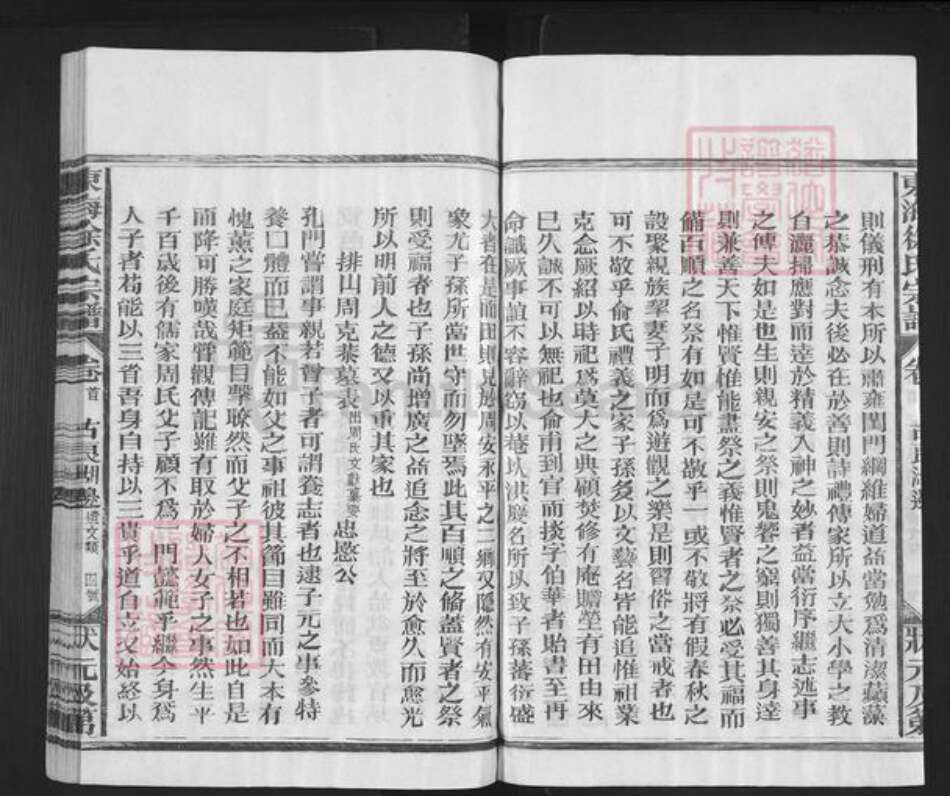 則儀刑有本所以肅雍閨門綱維婦道益當勉爲清潔蘋藻
之恭誠念夫後必在於善則詩禮傳家所以立大小學之教
自灑掃應對而達於精義入神之妙者益當衍序繼志述事
之傳夫如是也生則親安之祭則鬼饗之窮則獨善其身達
則兼善天下惟賢惟能盡祭之義惟賢者之祭必受其福而
備百順之名祭有如是可不敬乎一或不敬將有假春秋之
設聚親族挈妻子明而爲遊觀之樂是則習俗之當戒者也
可不敬乎俞氏禮義之家子孫多以文藝名皆能追惟祖業
克念厥紹以時祀爲莫大之典顧焚修有庵贍塋有田由來
巳久誠不可以無祀也俞甫到官而掞字伯華者貽書至再
命誠厥事誼不容辭竊以巷以洪
名所以致子孫蕃衍盛
大者在是而田則兄
周安永平之二鄉又隱然有安平氣
象尤子孫所當世守而勿墜焉此其百順之備蓋賢者之祭
則受福者也子孫尚增廣之益追念之將至於愈久而愈光
所以明前人之德又以重其家也
排山周克棻墓表 出周氏文獻纂要 忠愍公
孔門嘗謂事親若曾子者可謂養志者也逮子元之事參特
養口體而已益不能如父之事祖彼其節目雖同而大本有
愧薰之家庭矩範目擊瞭然而父子之不相若也如此自是
而降可勝嘆哉嘗觀傳記雖有取於婦人女子之事然生平
千百歲後有儒家周氏父子顧不爲一門懿範乎繼今身爲
人子者苟能以三省吾身自持以三貴乎道自立又始終以
東海徐氏宗譜 卷首 古良湖塋 禮文類 四號 狀元及第